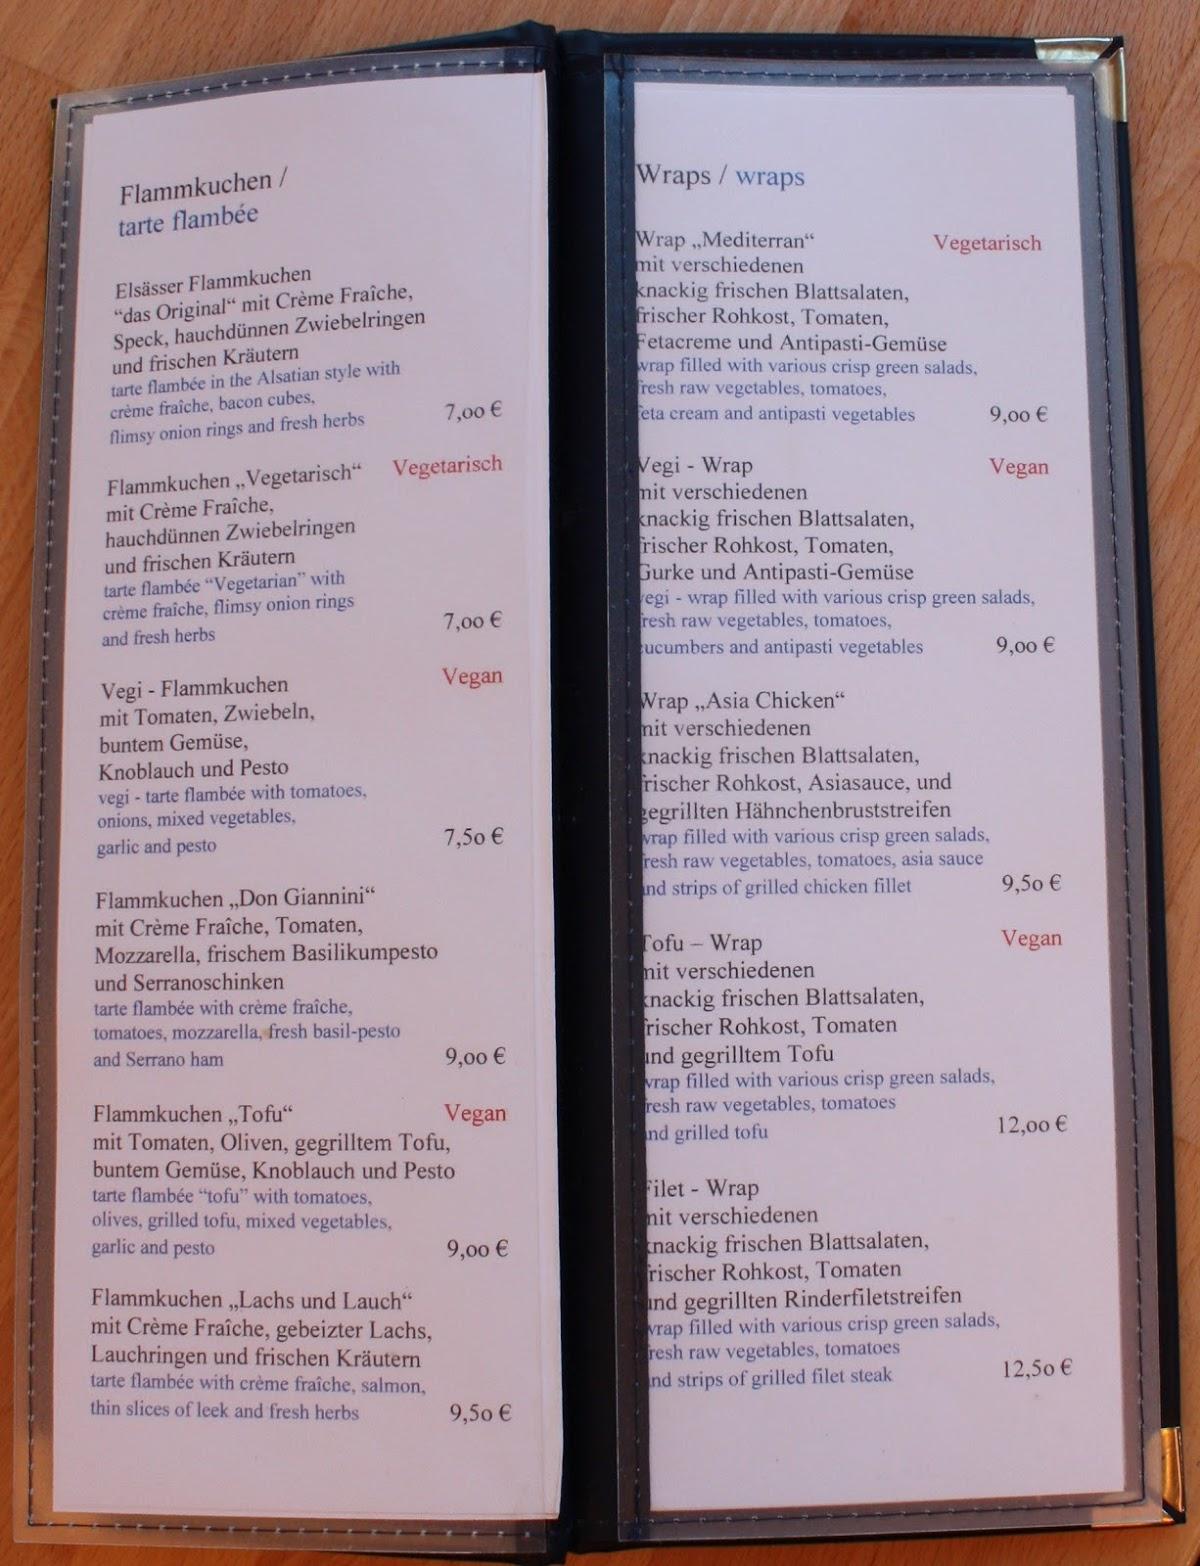 Flammkuchen /
tarte flambée
Elsässer Flammkuchen
“das Original“ mit Crème Fraîche,
Speck, hauchdünnen Zwiebelringen
und frischen Kräutern
tarte flambée in the Alsatian style with
crème fraîche, bacon cubes,
flimsy onion rings and fresh herbs 7,00 €
Flammkuchen „Vegetarisch“ Vegetarisch
mit Crème Fraîche,
hauchdünnen Zwiebelringen
und frischen Kräutern
tarte flambée “Vegetarian” with
crème fraîche, flimsy onion rings
and fresh herbs 7,00 €
Vegi - Flammkuchen Vegan
mit Tomaten, Zwiebeln,
buntem Gemüse,
Knoblauch und Pesto
vegi - tarte flambée with tomatoes,
onions, mixed vegetables,
garlic and pesto 7,50 €
Flammkuchen „Don Giannini“
mit Crème Fraîche, Tomaten,
Mozzarella, frischem Basilikumpesto
und Serranoschinken
tarte flambée with crème fraîche,
tomatoes, mozzarella, fresh basil-pesto
and Serrano ham 9,00 €
Flammkuchen „Tofu“ Vegan
mit Tomaten, Oliven, gegrilltem Tofu,
buntem Gemüse, Knoblauch und Pesto
tarte flambée “tofu” with tomatoes,
olives, grilled tofu, mixed vegetables,
garlic and pesto 9,00 €
Flammkuchen „Lachs und Lauch“
mit Crème Fraîche, gebeizter Lachs,
Lauchringen und frischen Kräutern
tarte flambée with crème fraîche, salmon,
thin slices of leek and fresh herbs 9,50 €
Wraps / wraps
Wrap „Mediterran“ Vegetarisch
mit verschiedenen
knackig frischen Blattsalaten,
frischer Rohkost, Tomaten,
Fetacreme und Antipasti-Gemüse
wrap filled with various crisp green salads,
fresh raw vegetables, tomatoes,
feta cream and antipasti vegetables 9,00 €
Vegi - Wrap Vegan
mit verschiedenen
knackig frischen Blattsalaten,
frischer Rohkost, Tomaten,
Gurke und Antipasti-Gemüse
vegi - wrap filled with various crisp green salads,
fresh raw vegetables, tomatoes,
cucumbers and antipasti vegetables 9,00 €
Wrap „Asia Chicken“
mit verschiedenen
knackig frischen Blattsalaten,
frischer Rohkost, Asiasauce, und
gegrillten Hähnchenbruststreifen
wrap filled with various crisp green salads,
fresh raw vegetables, tomatoes, asia sauce
and strips of grilled chicken fillet 9,50 €
Tofu – Wrap Vegan
mit verschiedenen
knackig frischen Blattsalaten,
frischer Rohkost, Tomaten
und gegrilltem Tofu
wrap filled with various crisp green salads,
fresh raw vegetables, tomatoes
and grilled tofu 12,00 €
Filet - Wrap
mit verschiedenen
knackig frischen Blattsalaten,
frischer Rohkost, Tomaten
und gegrillten Rinderfiletstreifen
wrap filled with various crisp green salads,
fresh raw vegetables, tomatoes
and strips of grilled filet steak 12,50 €